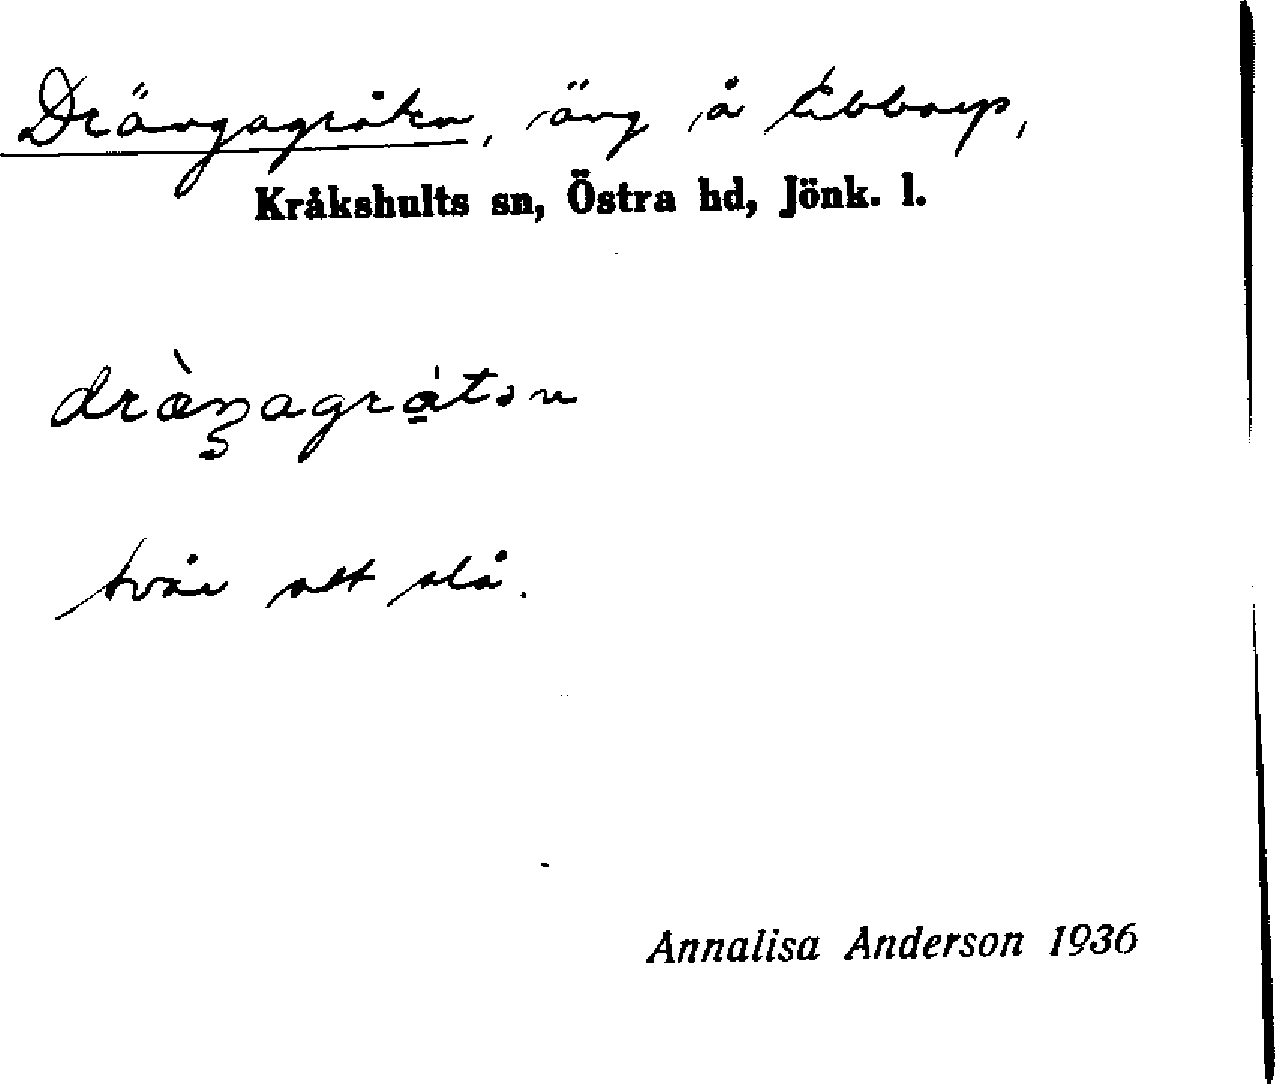 Drängagråten, äng å Ebbarp,
Kråkshults sn, Östra hd, Jönk. l.
tvär att slå.
Annalisa Anderson 1936